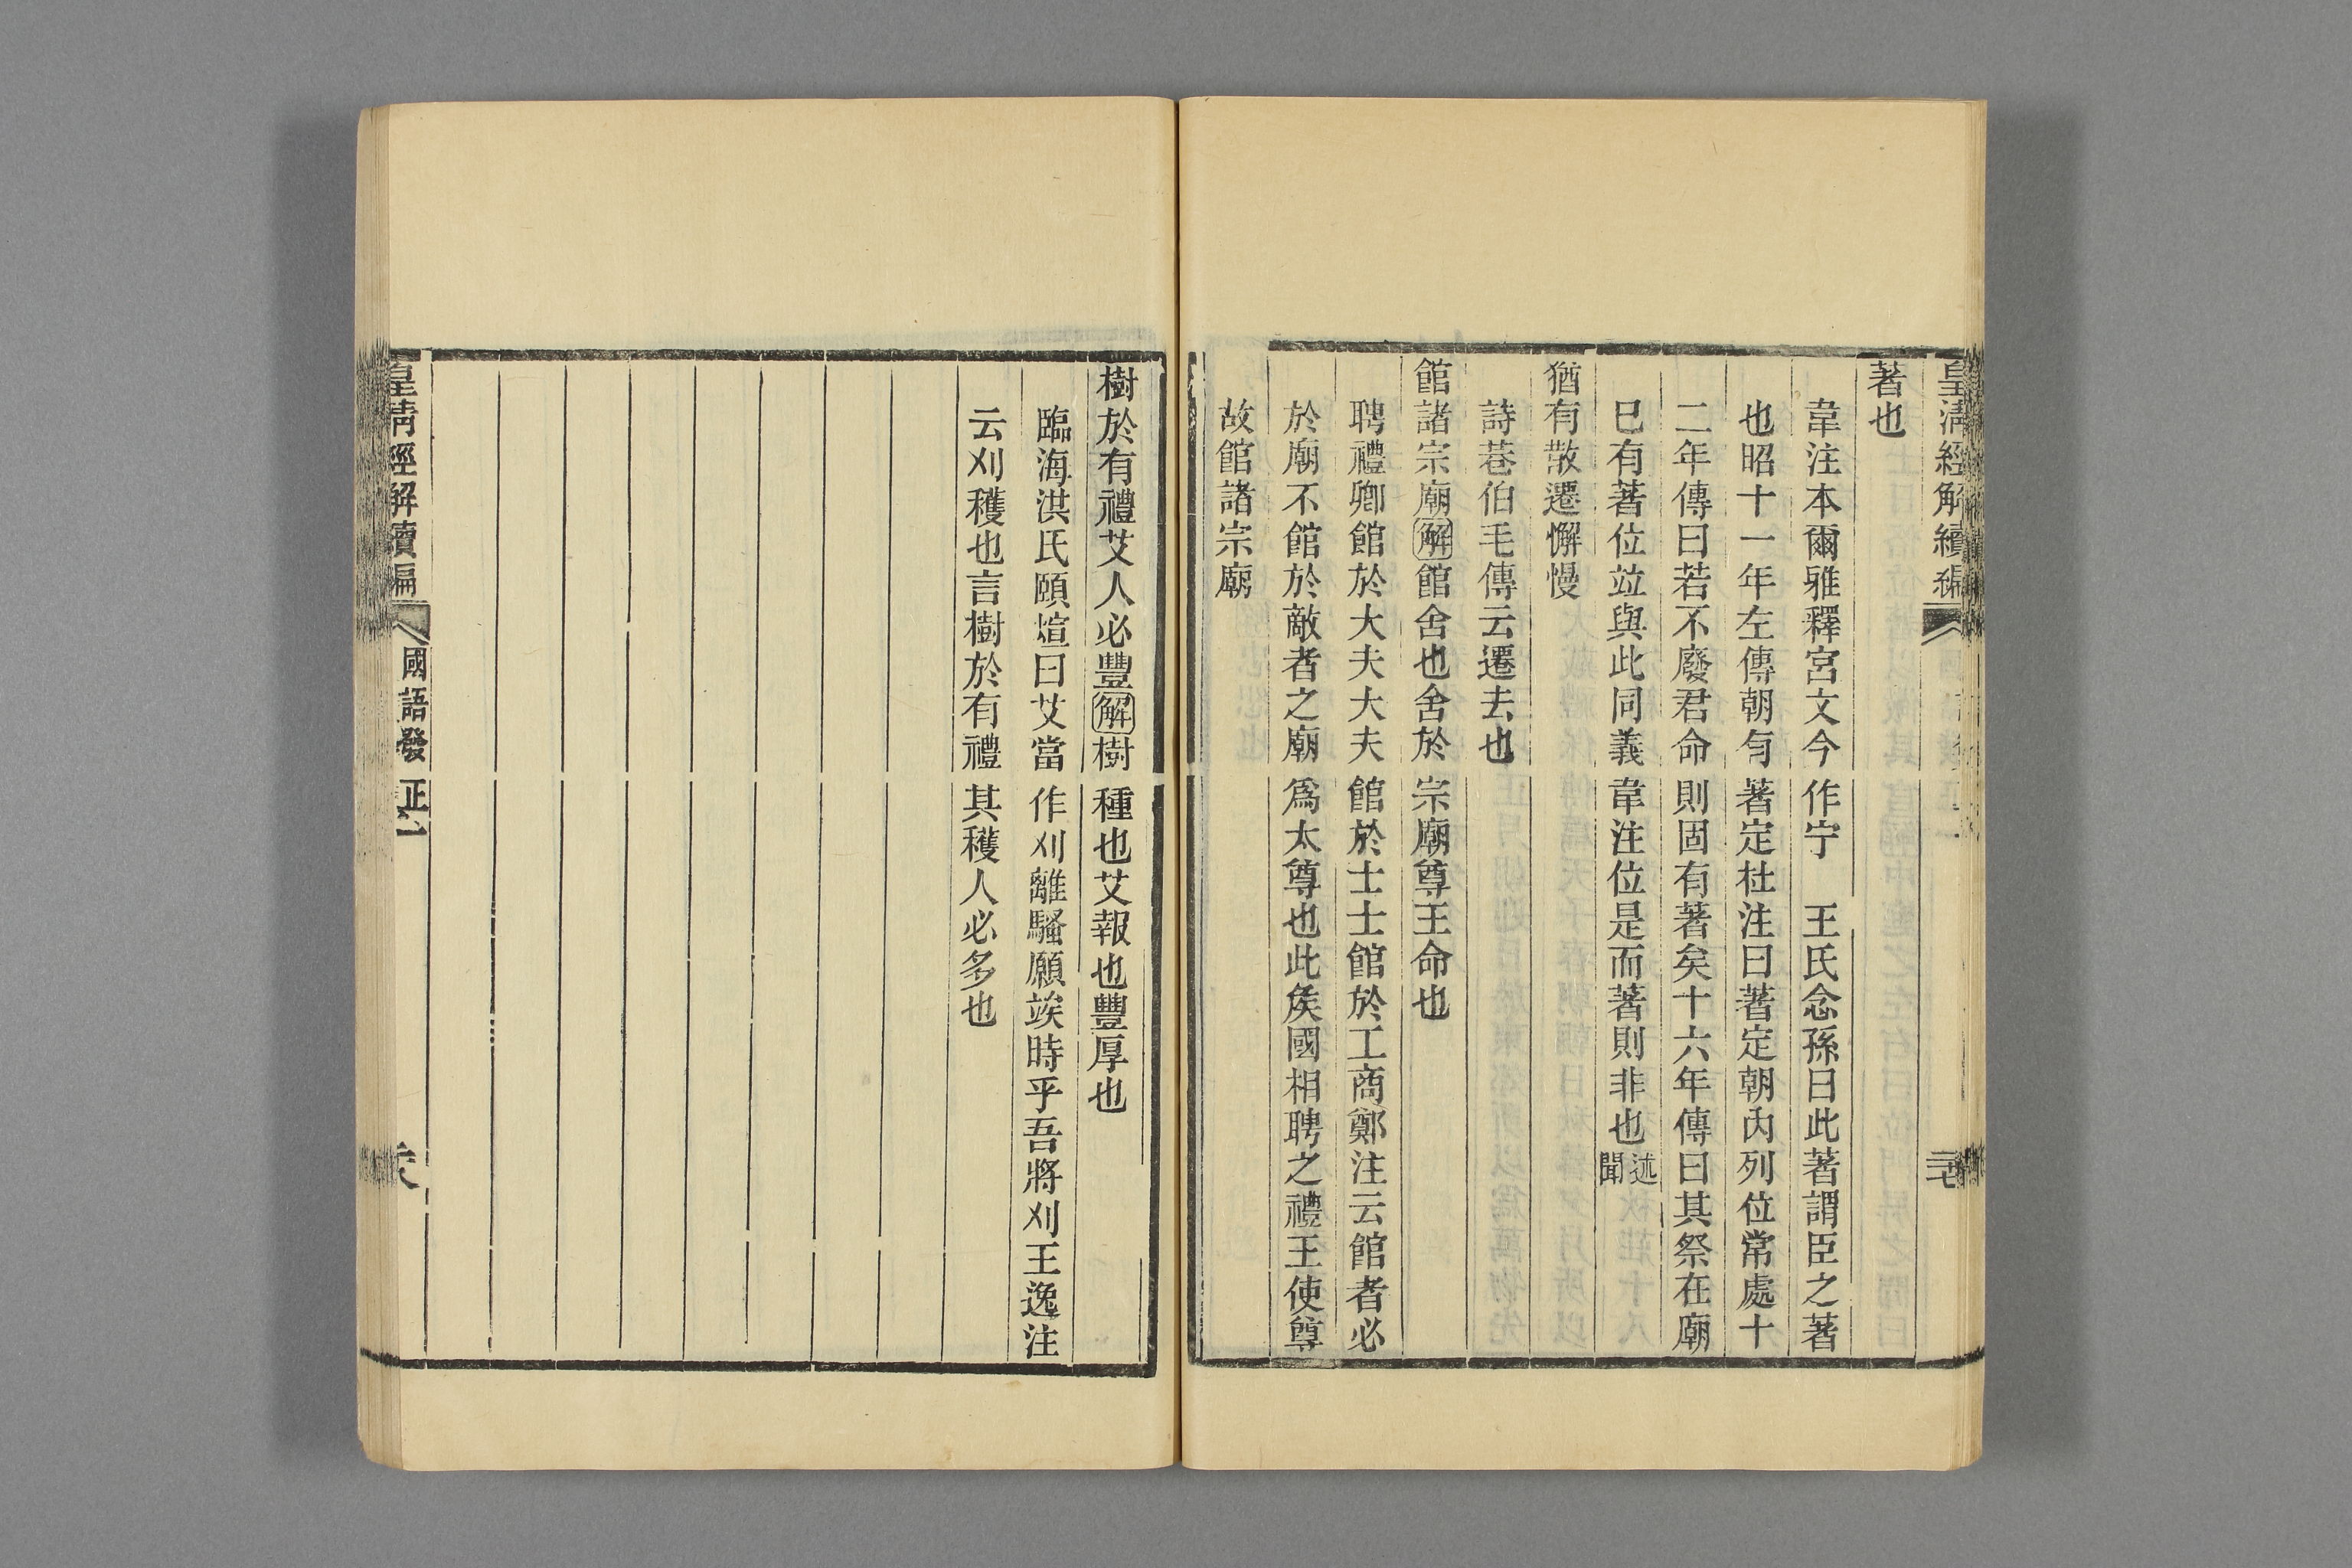 皇清經解續編
著也
韋注本爾雅釋宮文今作宁　王氏念孫曰此著謂臣之著
也昭十一年左傳朝有著定杜注曰著定朝內列位常處十
二年傳曰若不廢君命則固有著矣十六年傳曰其祭在廟
巳有著位竝與此同義韋注位是而著則非也述聞
猶有散遷懈慢
詩巷伯毛傳云遷去也
館諸宗廟解館舍也舍於宗廟尊王命也
聘禮卿館於大夫大夫館於士士館於工商鄭注云館者必
於廟不館於敵者之廟爲太尊也此矦國相聘之禮王使尊
故館諸宗廟
樹於有禮艾人必豐解樹種也艾報也豐厚也
臨海洪氏頤煊曰艾當作刈離騷願竢時乎吾將刈王逸注
云刈穫也言樹於有禮其穫人必多也
皇清經解續編
國語發正一